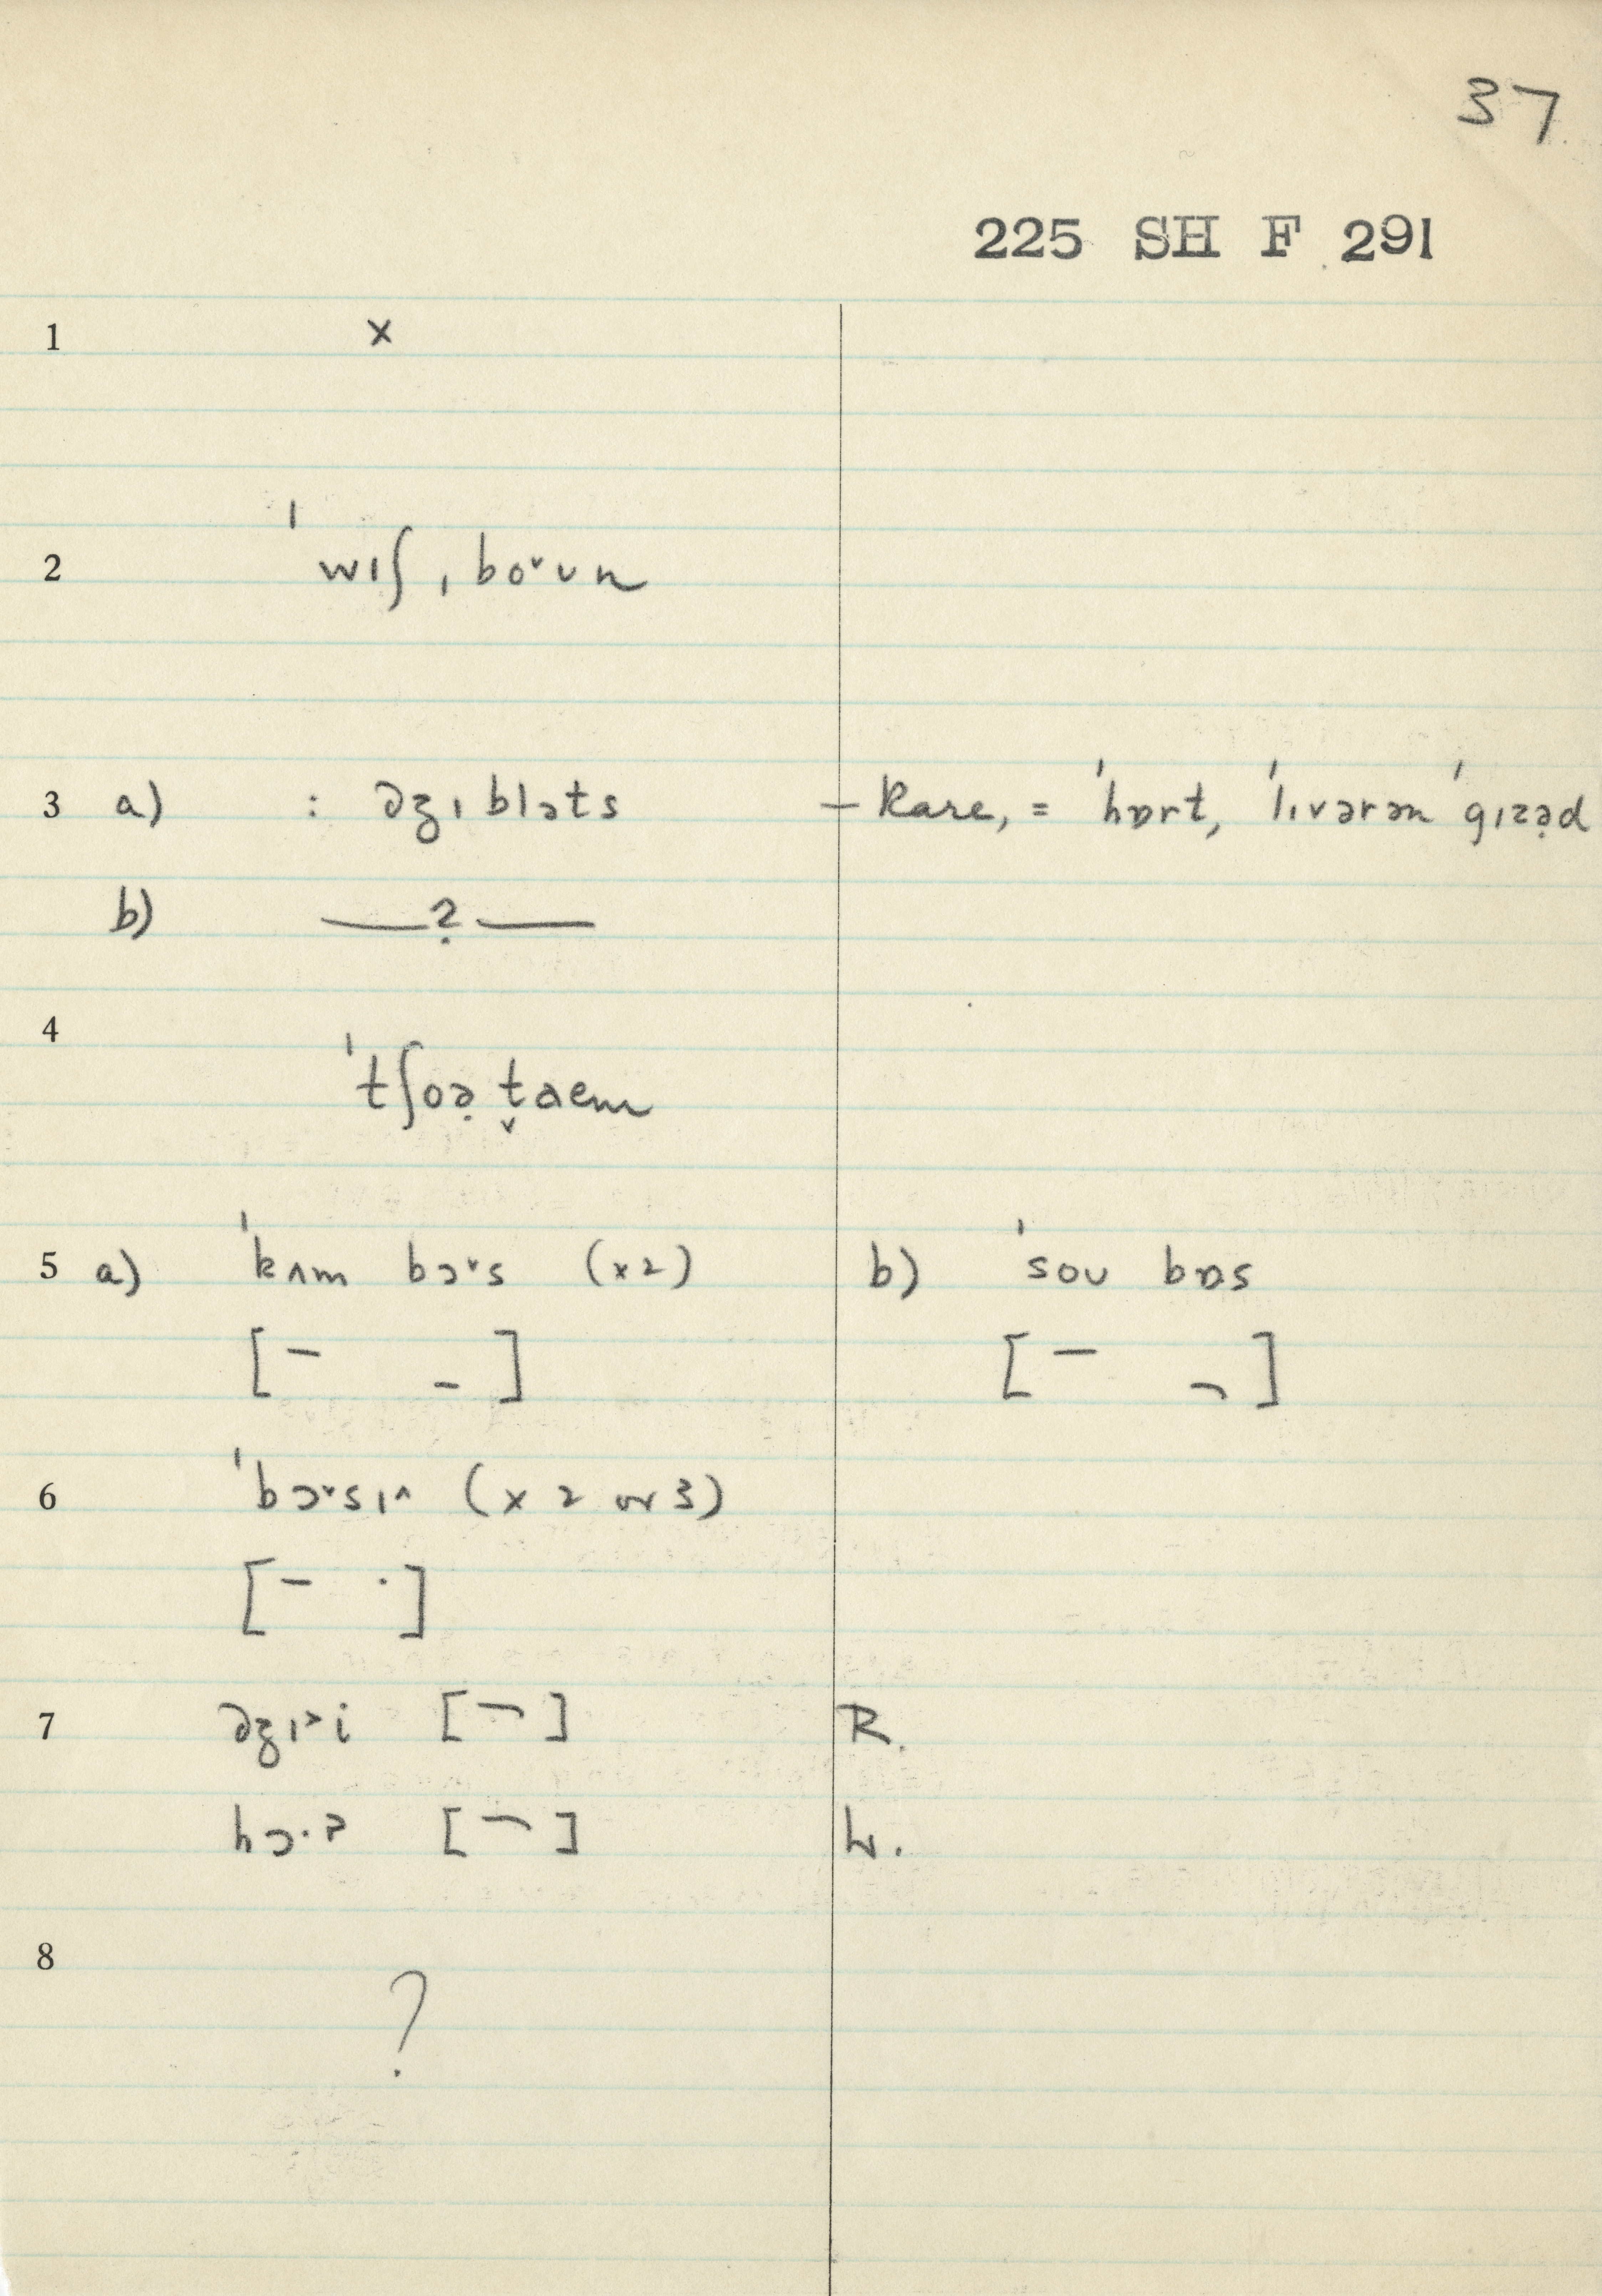 37
225 SH F 291
1 x
2 ˈwɪʃˌbo˅ʊn
3 a) : əʒɪblɔts – Rare, = ˈhɒrt, ˈlɪvərən ˈgɪzə̣d
b) —?—
4 ˈtʃoə̣ t̬aem
5 a) ˈkʌm bɔ˅s (x2) b) ˈsoʊ bɒs
[– –] [– ¬]
6 ˈbɔ˅sɪ^ (x 2 or 3)
[– ·]
7 [¬] R.
[¬] L.
8 ?